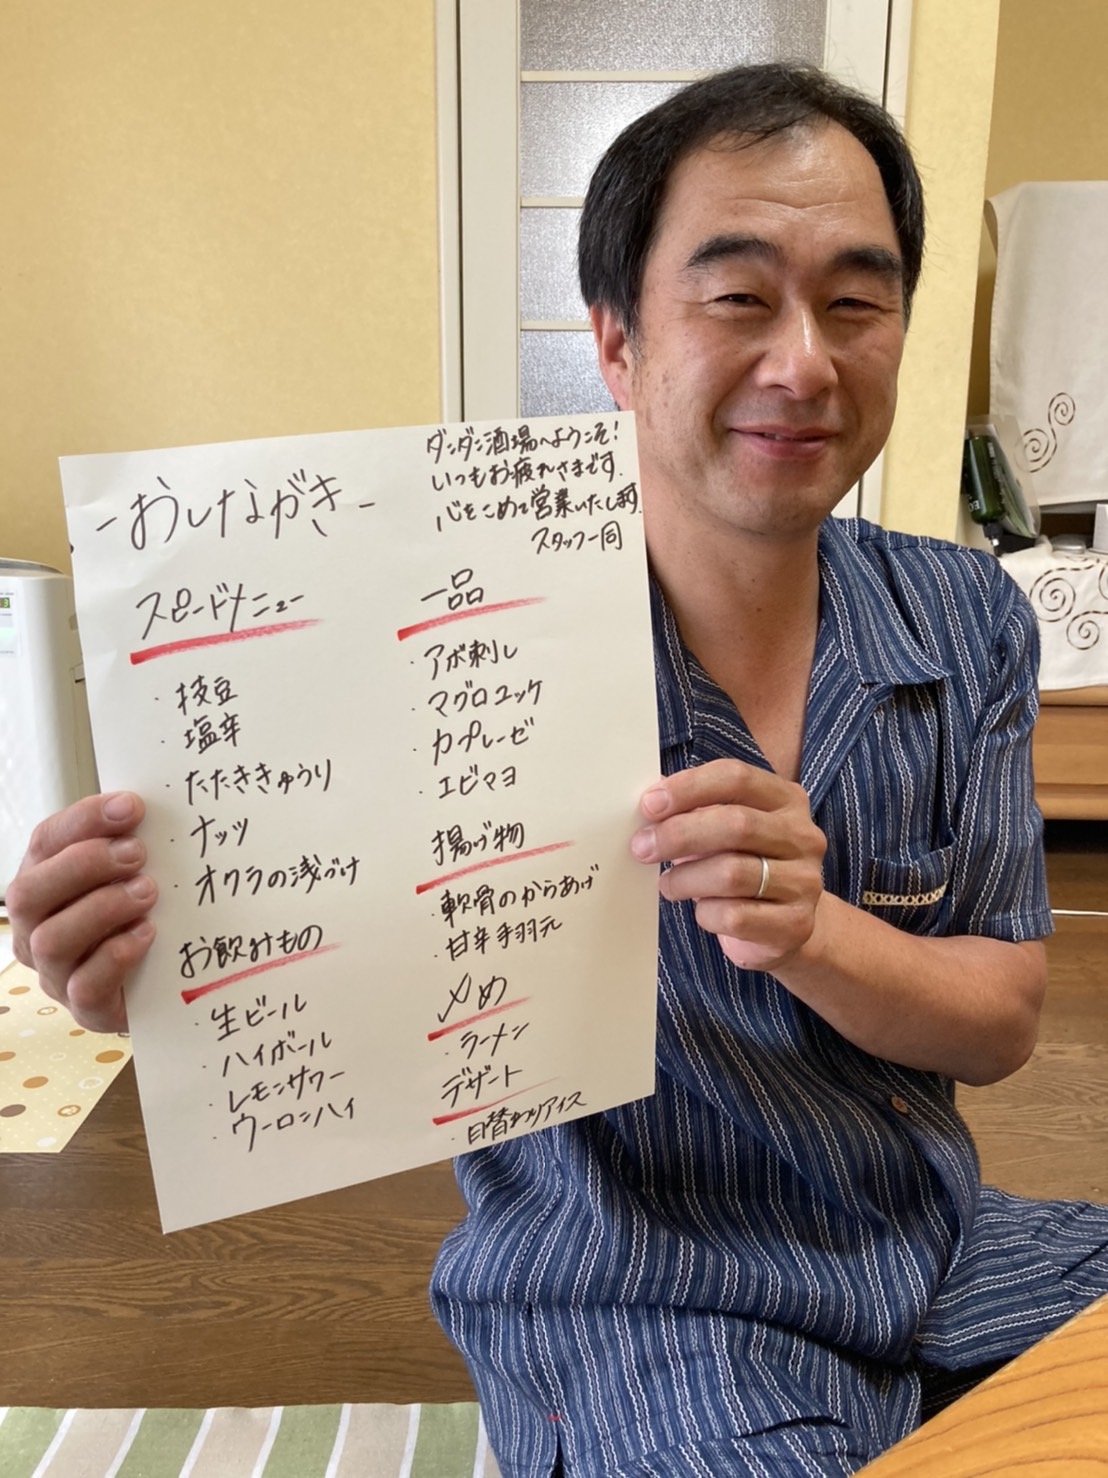 -おしながき-
ダンダン酒場へようこそ!
いつもお疲れさまです.
心をこめて営業いたします.
スタッフ一同
スピードメニュー
・枝豆
・塩辛
・たたききゅうり
・ナッツ
・オクラの浅づけ
お飲みもの
・生ビール
・ハイボール
・レモンサワー
・ウーロンハイ
一品
・アボ刺し
・マグロユッケ
・カプレーゼ
・エビマヨ
揚げ物
・軟骨のからあげ
・甘辛手羽元
〆め
・ラーメン
デザート
・日替わりアイス